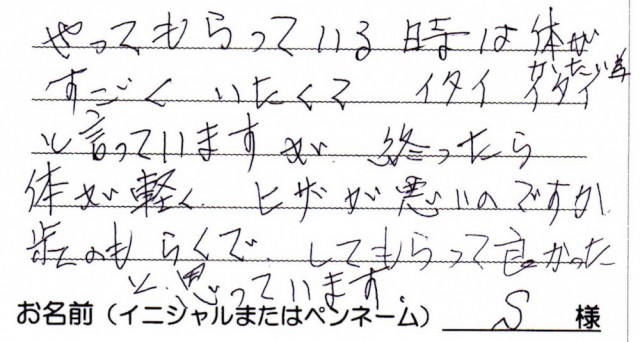 やってもらっている 時は 体が
すごく いたくて イタイ イタイ
と言っていますが 終ったら
体が軽く ヒザが悪いのですが
歩くのも らくで してもらって良かった
と思っています。
お名前（イニシャルまたはペンネーム） S 様